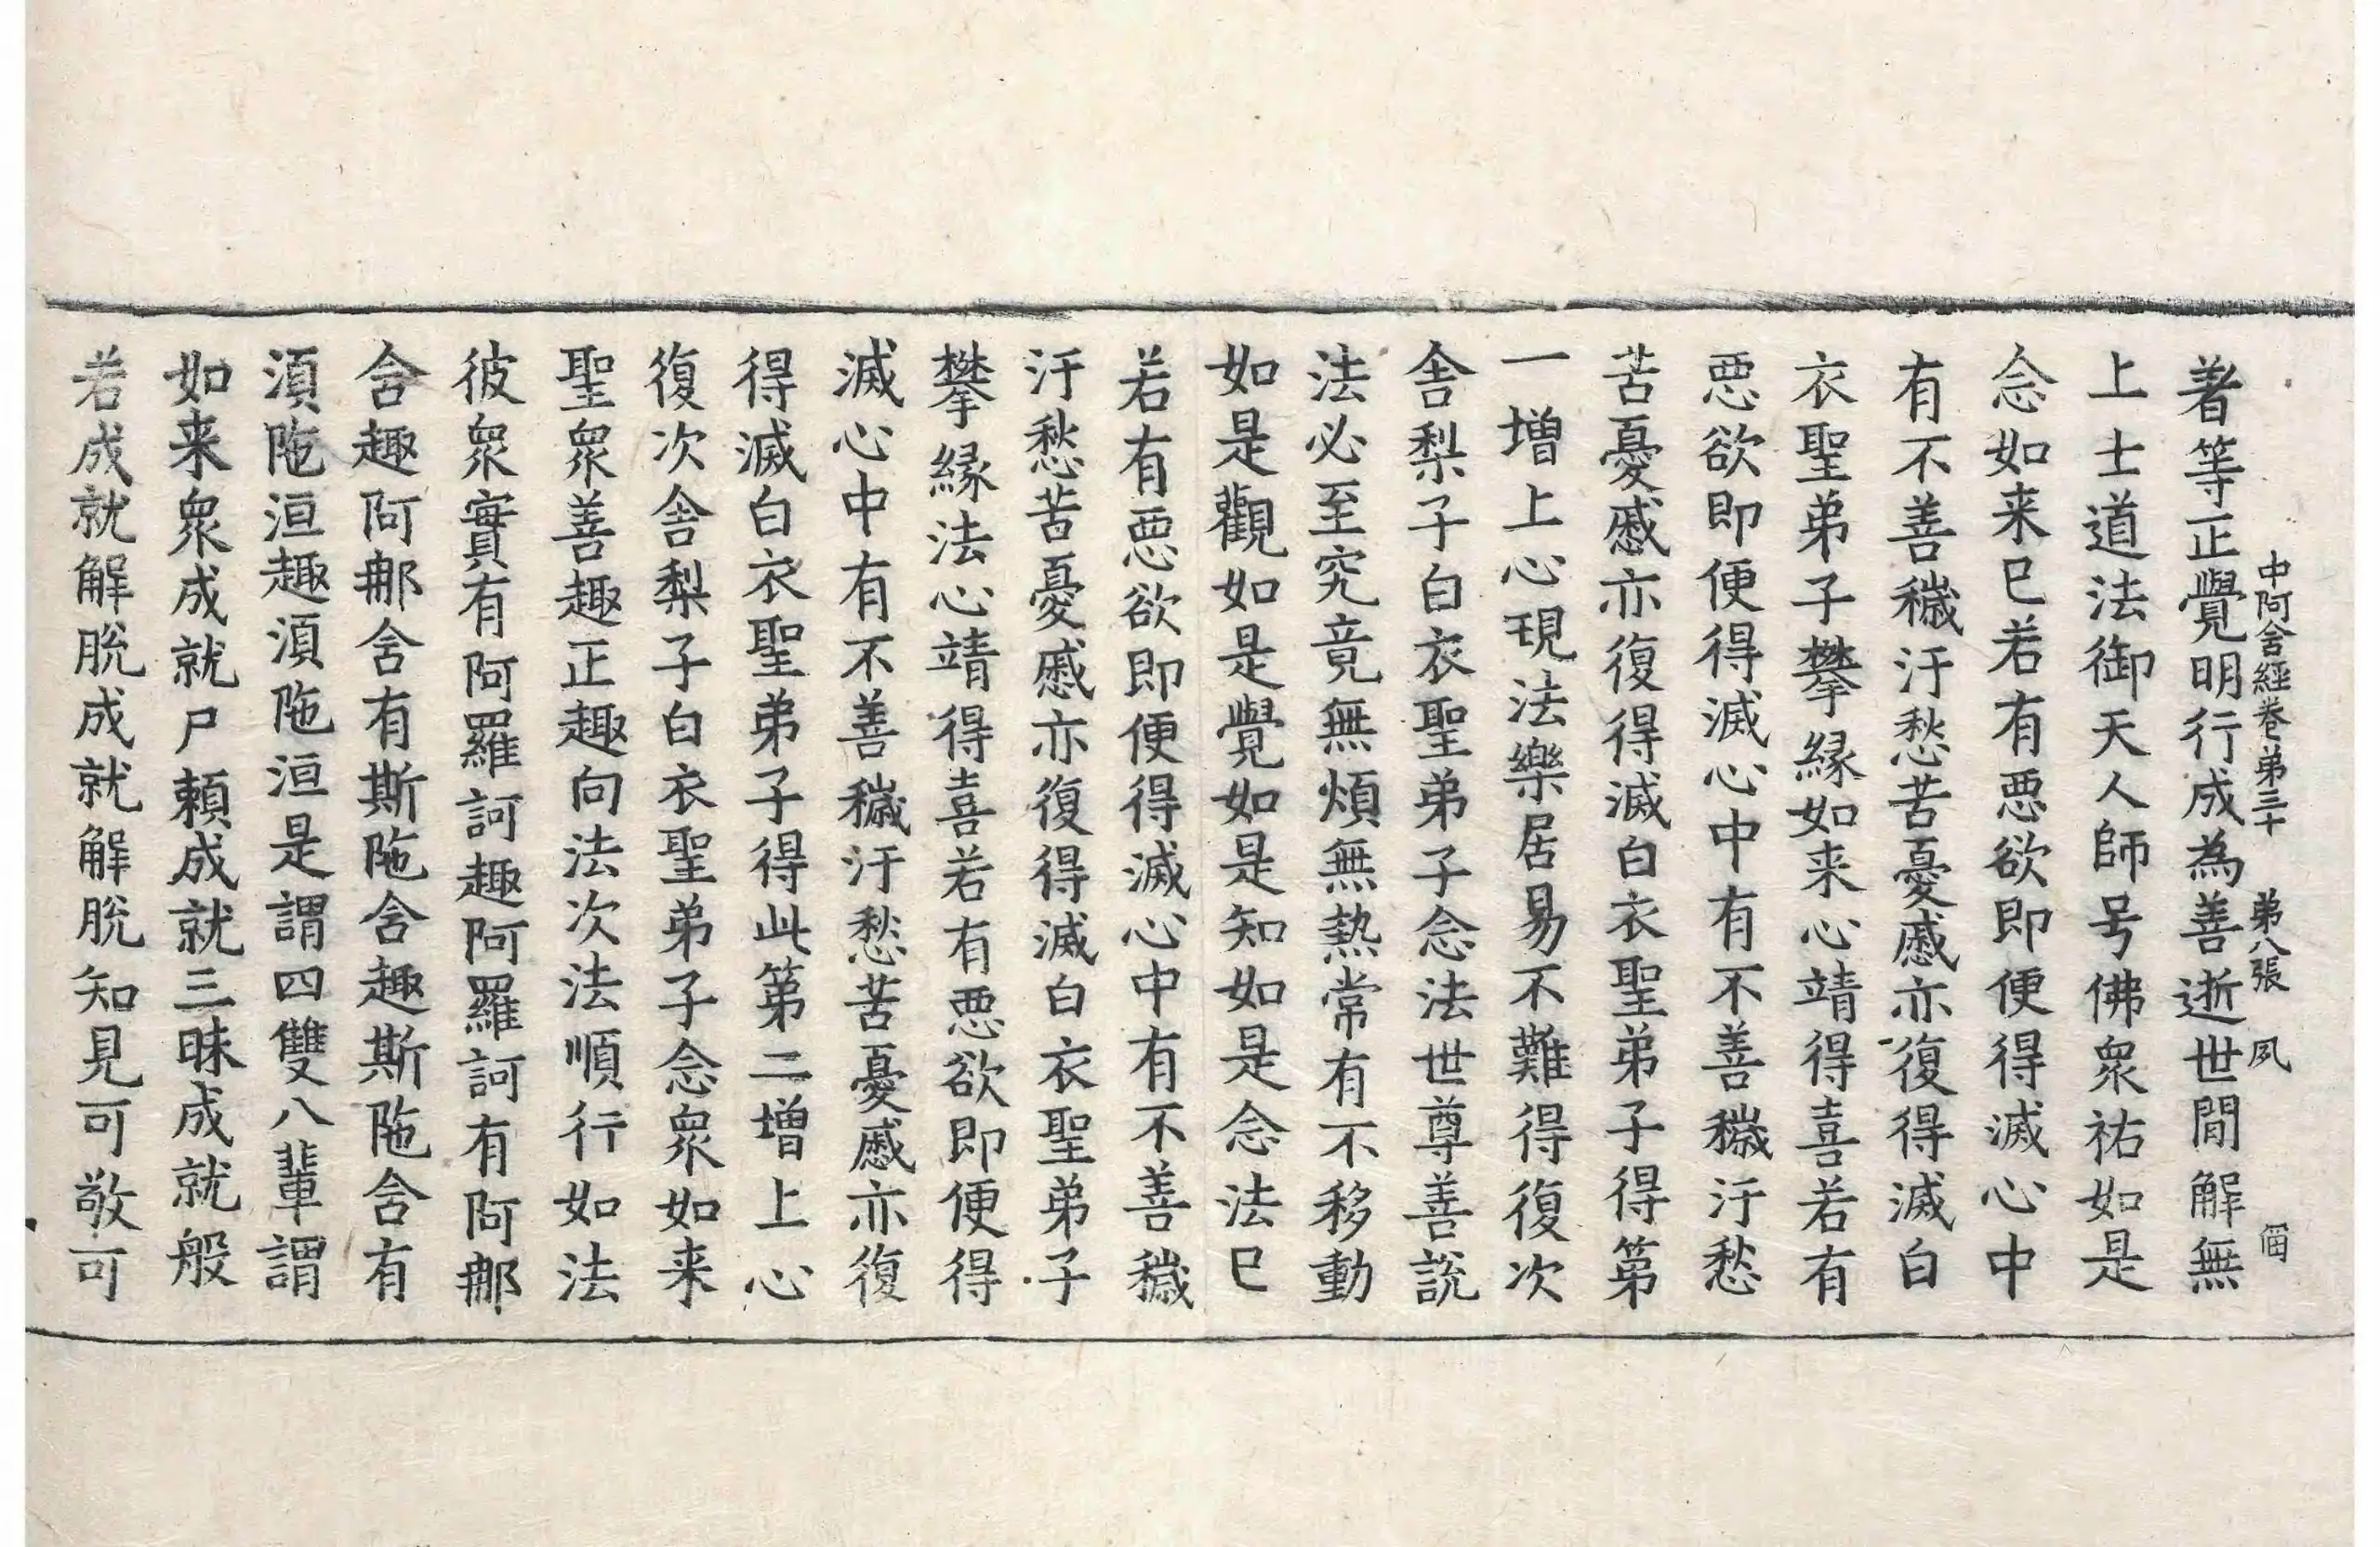 中阿含經卷弟三十 弟八張 夙
著等正覺明行成為善逝世間解無
上士道法御天人師号佛衆祐如是
念如来已若有悪欲即便得滅心中
有不善穢汙愁苦憂慼亦復得滅白
衣聖弟子攀縁如来心靖得喜若有
悪欲即便得滅心中有不善穢汙愁
苦憂慼亦復得滅白衣聖弟子得第
一增上心現法樂居易不難得復次
舎梨子白衣聖弟子念法世尊善說
法必至究竟無煩無熱常有不移動
如是觀如是覺如是知如是念法已
若有悪欲即便得滅心中有不善穢
汙愁苦憂慼亦復得滅白衣聖弟子
攀縁法心靖得喜若有悪欲即便得
滅心中有不善穢汙愁苦憂慼亦復
得滅白衣聖弟子得此第二增上心
復次舎梨子白衣聖弟子念衆如来
聖衆善趣正趣向法次法順行如法
彼衆實有阿羅訶趣阿羅訶有阿郍
含趣阿郍含有斯陁含趣斯陁含有
湏陁洹趣湏陁洹是謂四雙八輩謂
如来衆成就尸賴成就三昧成就般
若成就解脫成就解脫知見可敬可